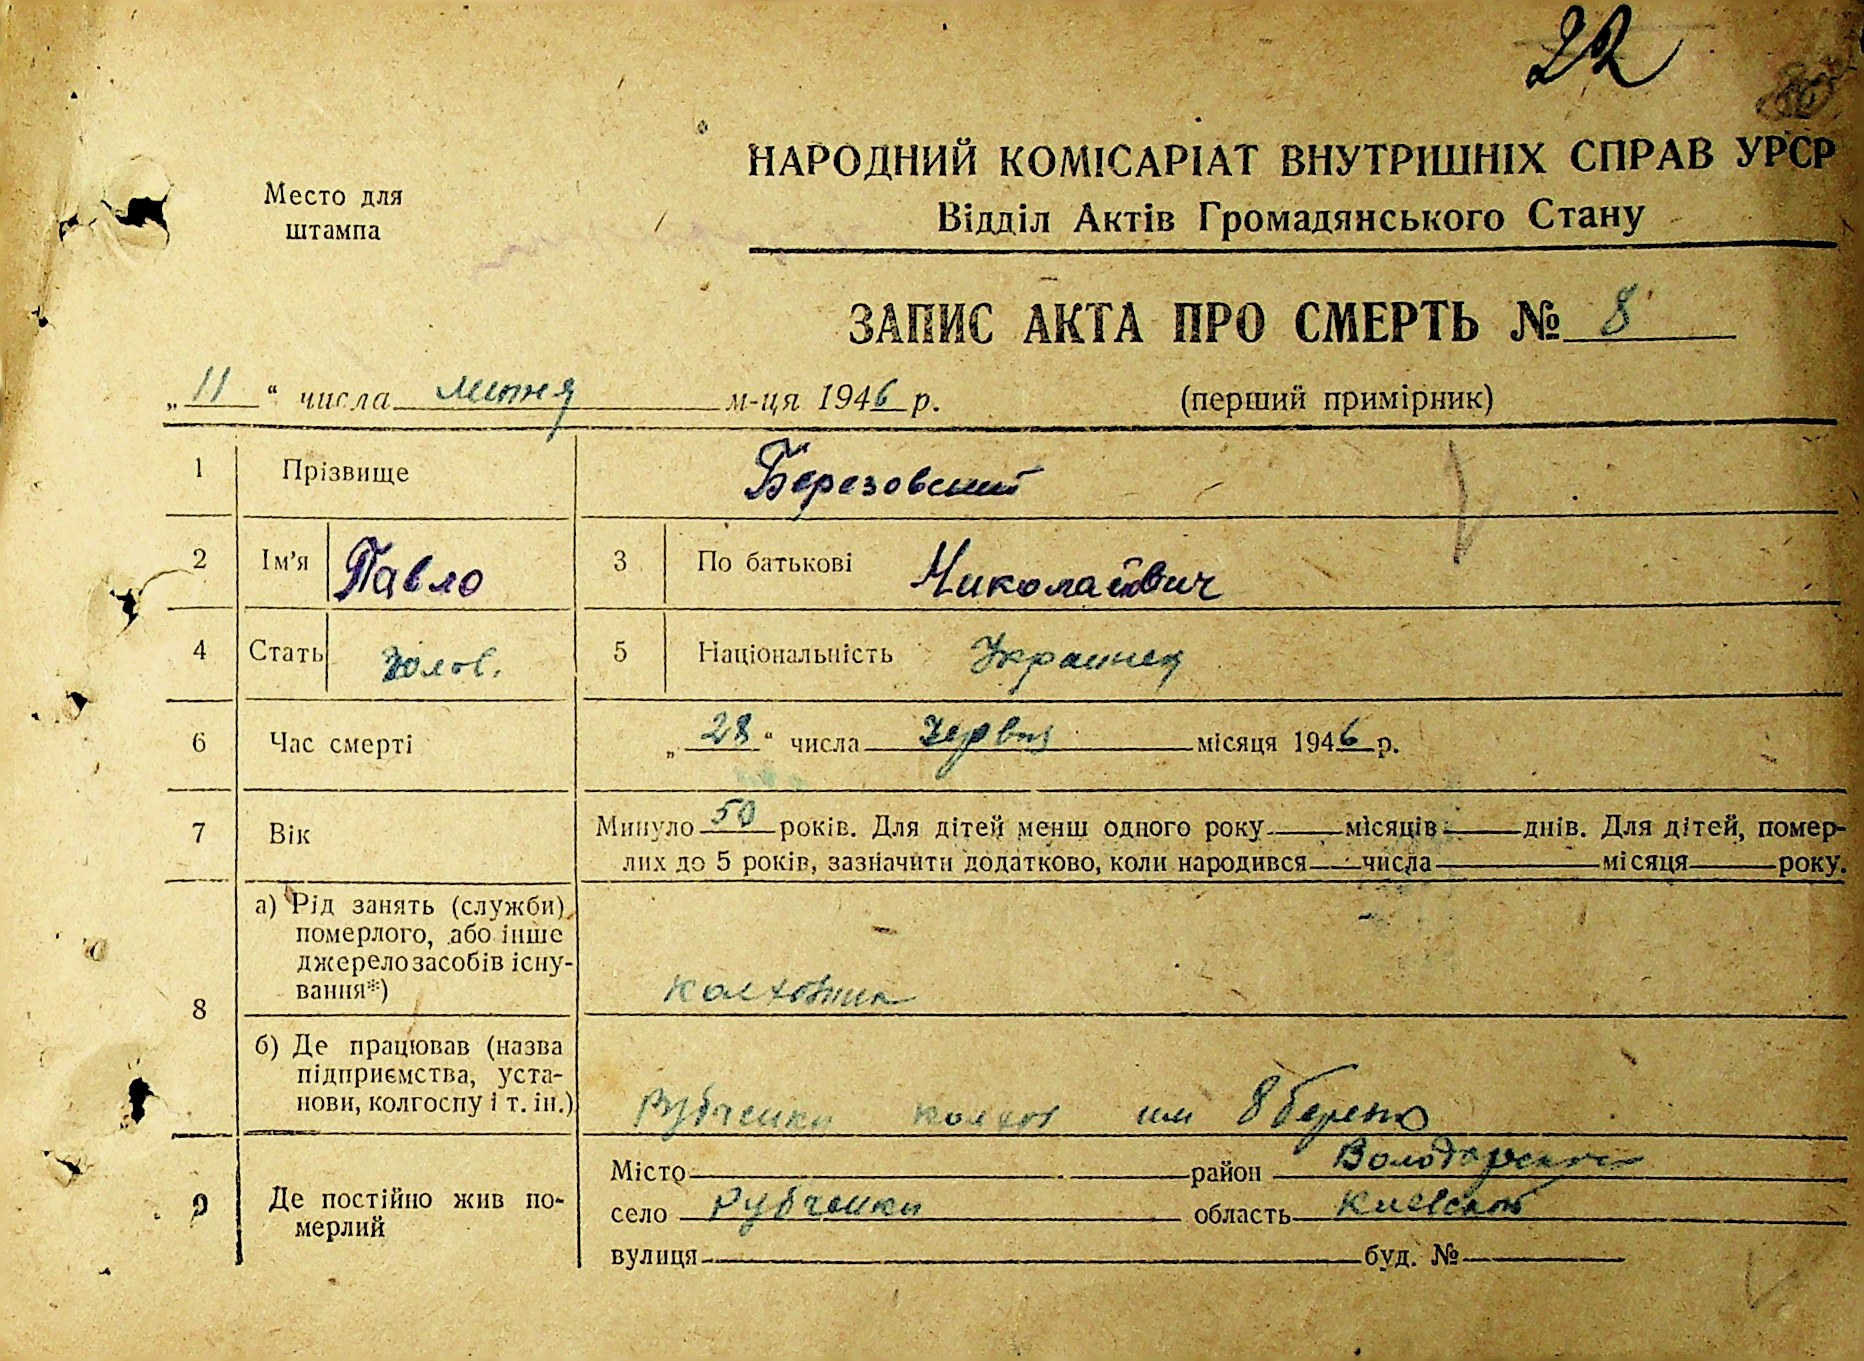 22
НАРОДНИЙ КОМІСАРІАТ ВНУТРІШНІХ СПРАВ УРСР
Відділ Актів Громадянського Стану
Место для
штампа
ЗАПИС АКТА ПРО СМЕРТЬ № 8
„ 11 “ числа липня м-ця 1946 р. (перший примірник)
1 Прізвище Березовский
2 Ім'я Павло 3 По батькові Николайович
4 Стать Чолов. 5 Національність Украинец
6 Час смерті „ 28 “ числа Червня місяця 1946 р.
7 Вік Минуло 50 років. Для дітей менш одного року місяців днів. Для дітей, помер-
лих до 5 років, зазначити додатково, коли народився числа місяця року.
8 а) Рід занять (служби) померлого, або інше джерело засобів існу-
вання*) колхозник
б) Де працював (назва
підприємства, уста-
нови, колгоспу і т. ін.) Рубченки колхоз им 8 березня
9 Де постійно жив по-
мерлий
Місто район Володарский
село Рубченки область Киевской
вулиця буд. №